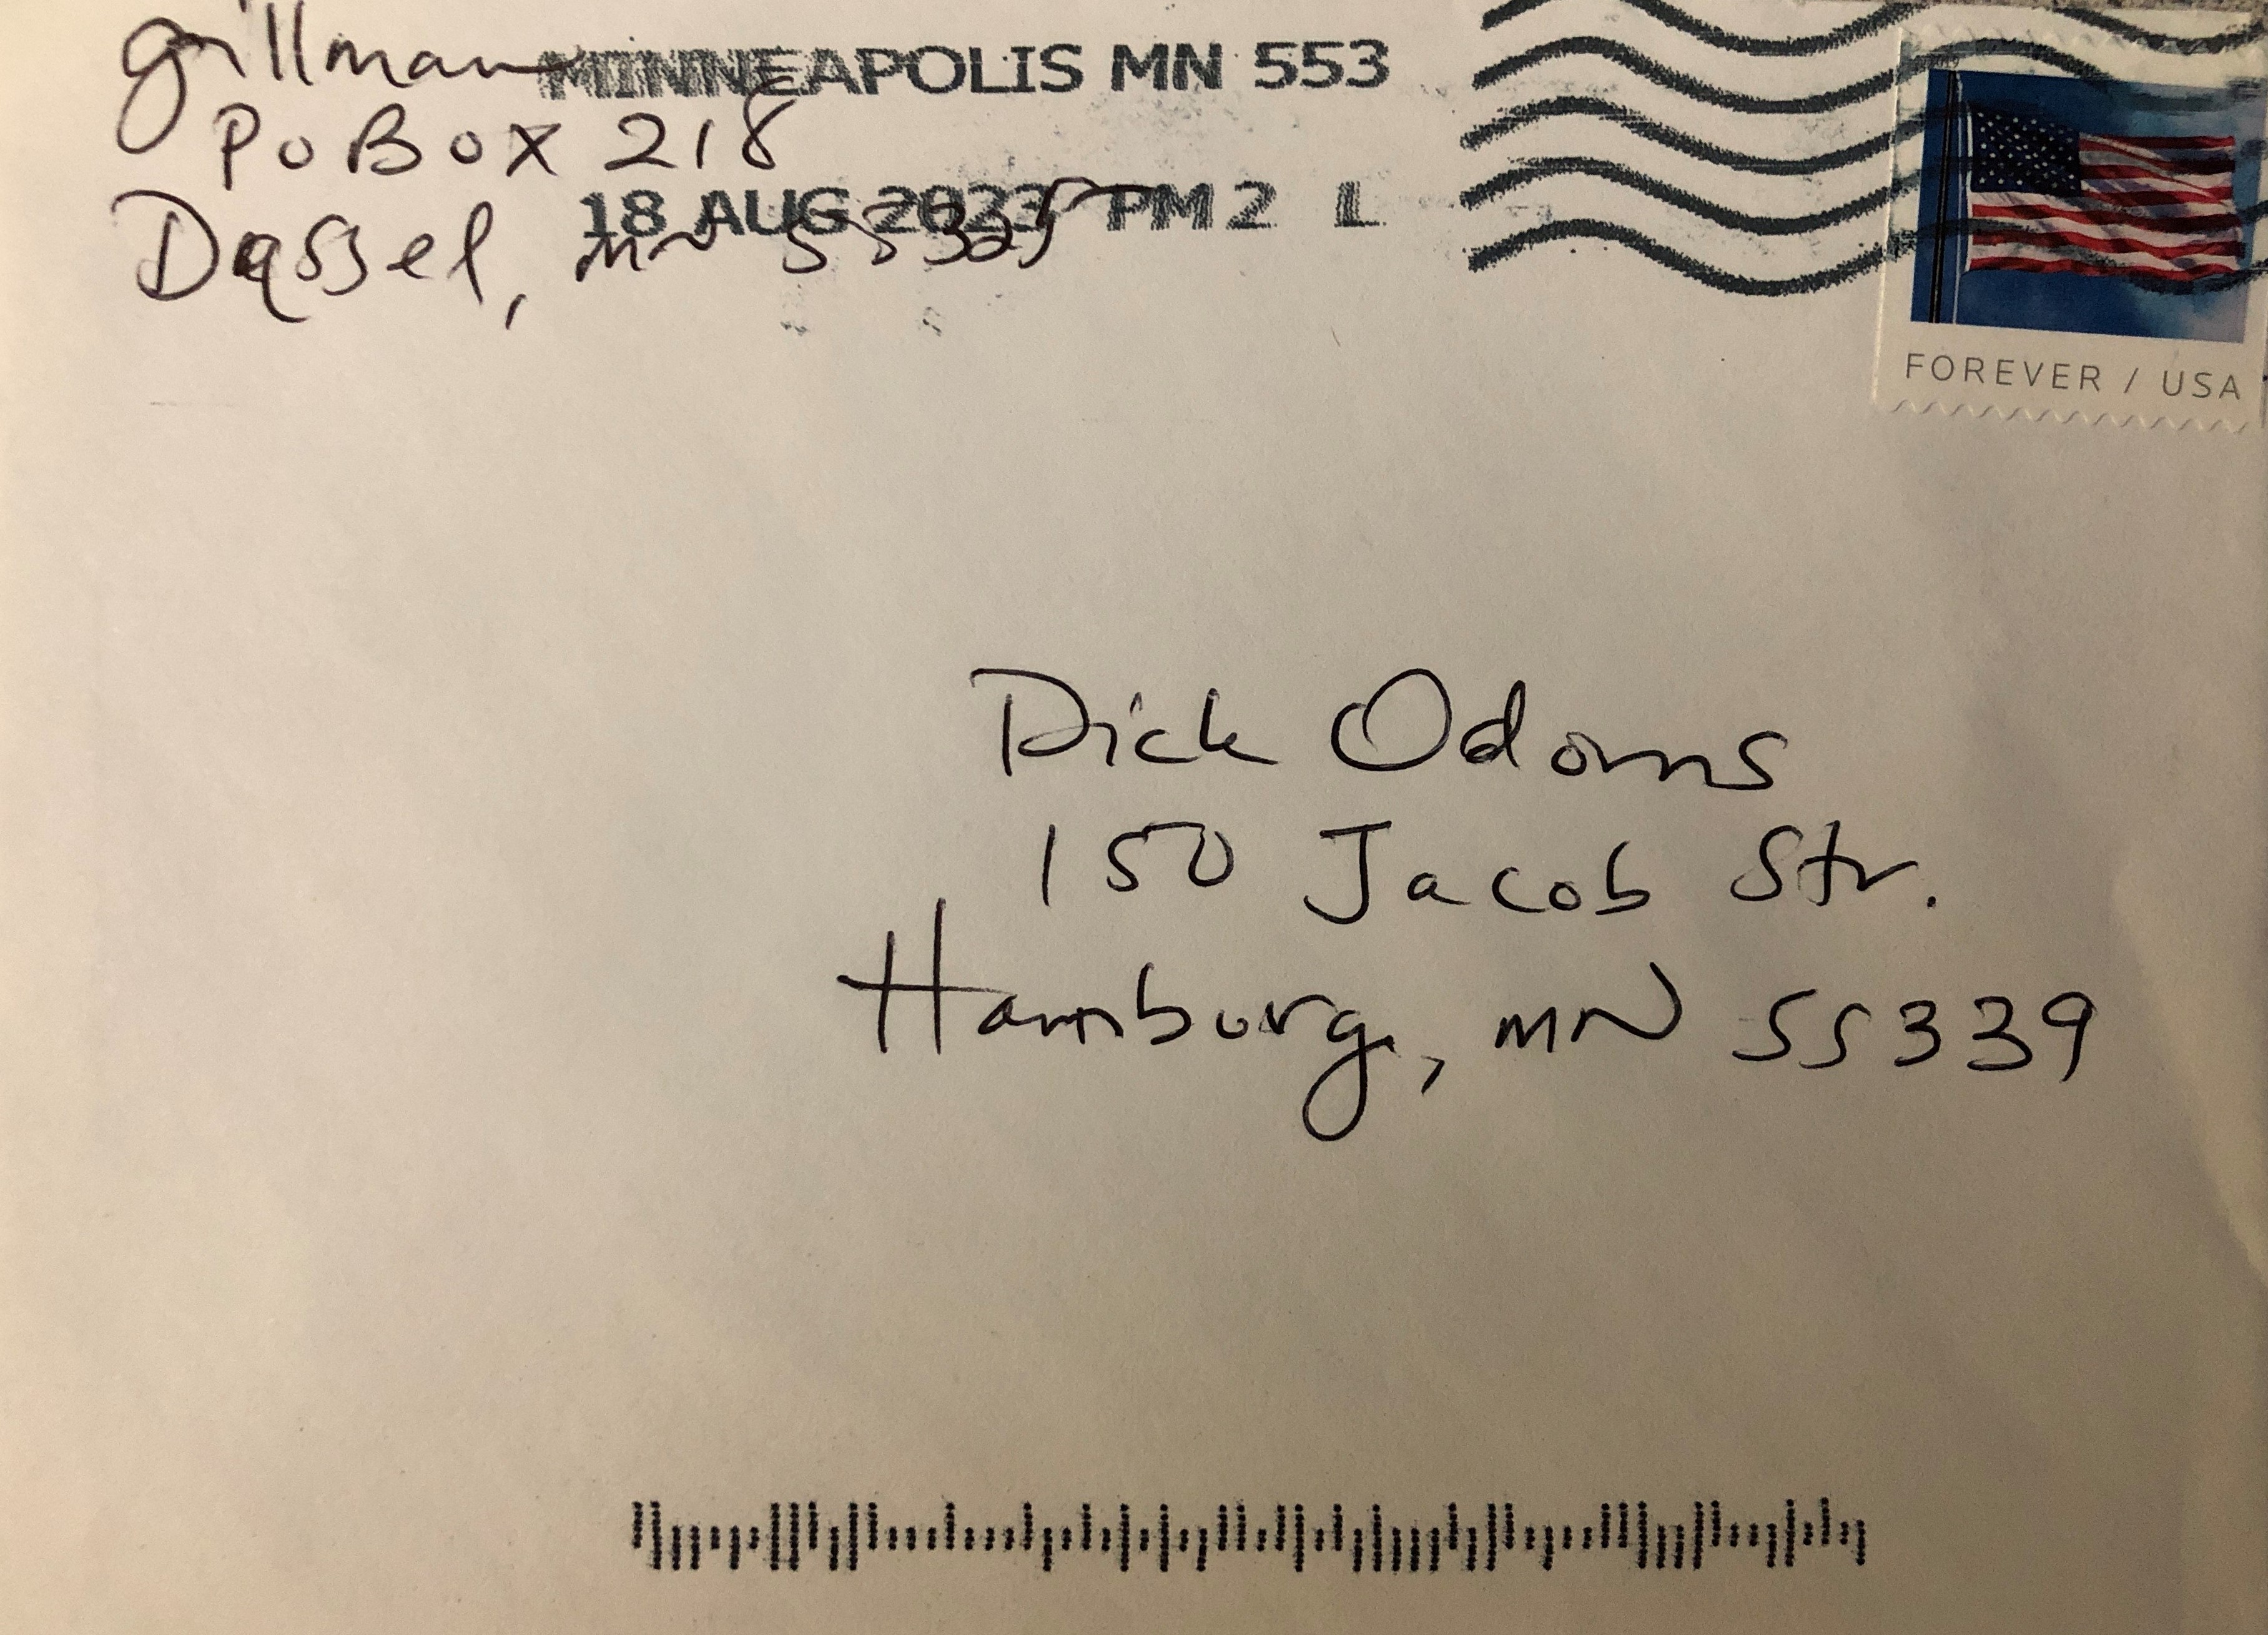 Grillman
PO Box 218
Dassel, MN 55325
MINNEAPOLIS MN 553
18 AUG 2023 PM 2 L
FOREVER / USA
Dick Odoms
150 Jacob Str.
Hamburg, MN 55339